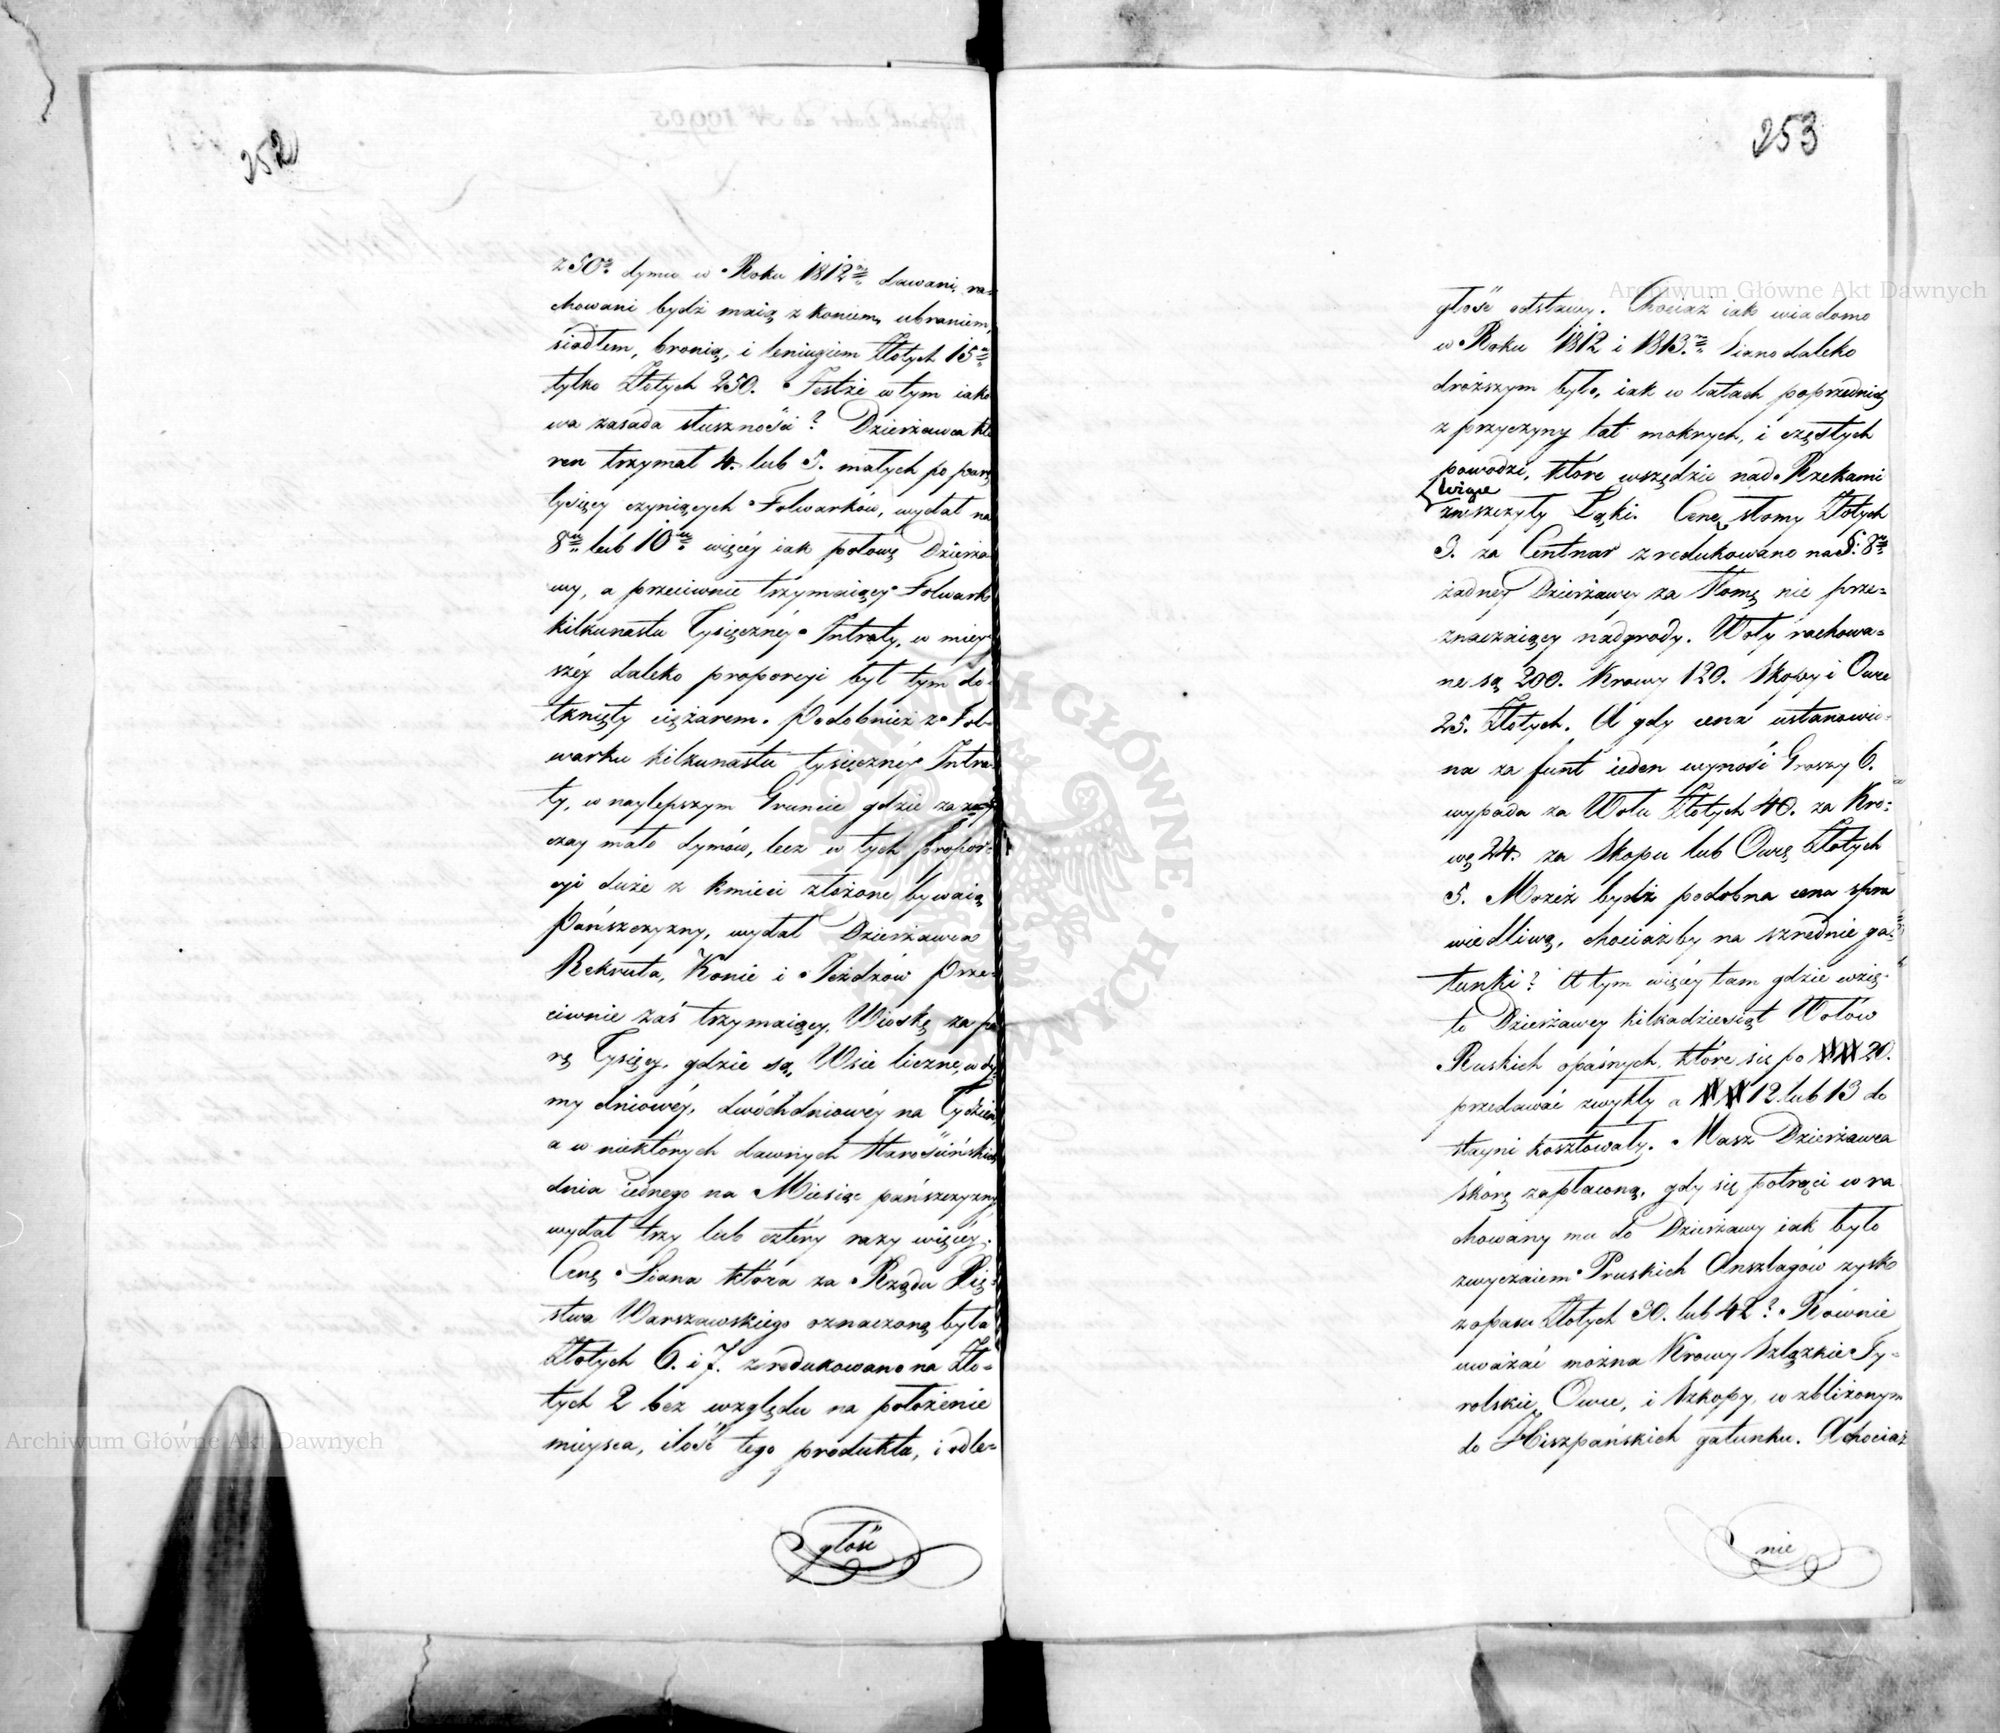 252
z 50u dymu w Roku 1812m dawani, ra=
chowani bydź maią z koniem, ubraniem,
siodłem, bronią, i leniugiem Złotych 15m
tylko Złotych 250. Jestże w tym iako
wa zasada słuszności? Dzierżawca kto
ren trzymał 4. lub 5. małych po parę
tysięcy czyniących Folwarków, wydał na
8m lub 10m więcéy iak połowę Dzierża
wy, a przeciwnie trzymaiący Folwark
kilkunastu Tysięcznéy Intraty, w mniey
széy daleko proporcyi był tym do=
tknięty ciężarem. Podobnież z Fol=
warku kilkunastu tysięcznéy Intra=
ty, w naylepszym Gruncie gdzie zazwy
czay mało dymów, lecz w tych propor=
cyi duże z kmieci złożone bywaią
Pańszczyzny, wydał Dzierżawca
Rekruta, Konie i Jeźdzów prze=
ciwnie zaś trzymaiący Wioskę za pa
rę Tysięcy, gdzie są Wsie liczne, w dy
my dniowéy, dwóchdniowéy na Tydzień
a w niektórych dawnych Starościńskich
dnia iednego na Miesiąc pańszczyzny
wydał trzy lub cztéry razy więcéy.
Cenę Siana która za Rządu Xię=
stwa Warszawskiego oznaczoną była
Złotych 6. i 7. zredukowano na Zło=
tych 2 bez względu na położenie
mieysca, ilość tego produkta, i odle=
głość
253
głość odstawy. Chociaż iak wiadomo
w Roku 1812 i 1813m Siano daleko
droższym było, iak w latach poprzednich
z przyczyny lat mokrych, i częstych
powodzi, które wszędzie nad Rzekami
Wigie
zniszczyły Łąki. Cenę słomy Złotych
3. za Centnar zredukowano na g: 8m
żadney Dzierżawcy za Słomę nie prze=
znaczaiący nadgrody. Woły rachowa=
ne są 200. Krowy 120. Skopy i Owce
25. Złotych. A gdy cena ustanowio=
na za funt ieden wynosi Groszy 6.
wypada za Wołu Złotych 40. za Kro=
wę 24. za Skopu lub Owcę Złotych
5. Możeż bydź podobna cena spra
wiedliwą, chociażby na szrednie ga=
tunki? A tym więcéy tam gdzie wzię=
to Dzierżawcy kilkadziesiąt Wołów
Ruskich opaśnych, które się po ## 20.
przedawać zwykły a ## 12 lub 13 do
stayni kosztowały. Masz Dzierżawca
skórę zapłaconą, gdy się potrąci w ra
chowany mu do Dzierżawy iak było
zwyczaiem Pruskich Anszlagów zysk
z opasu Złotych 30. lub 42? Równie
uważać można Krowy Szląskie Ty=
rolskie, Owce, i Szkopy, w zbliżonym
do Hiszpańskich gatunku. A chociaż
nie
Archiwum Główne Akt Dawnych
Archiwum Główne Akt Dawnych